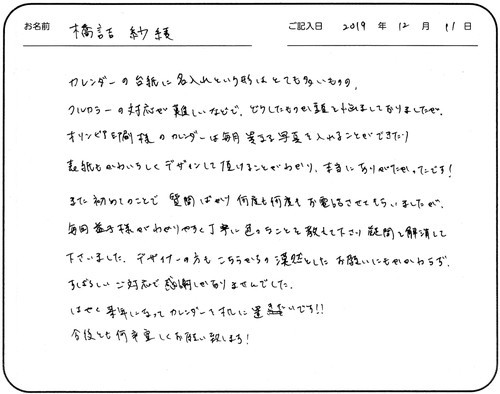 お名前 橋詰 紗綾 ご記入日 2019 年 12 月 11 日
カレンダーの台紙に名入れという形はとても多いものの、
フルカラーの対応が難しいなどで、どうしたものか頭を悩ましておりましたが、
オリンピア印刷様のカレンダーは毎月違う写真を入れることができたり
表紙もかわいらしくデザインして頂けることがわかり、本当にありがたかったです!
また初めてのことで質問ばかり何度も何度もお電話させてもらいましたが、
毎回益子様がわかりやすく丁寧に色々なことを教えて下さり疑問を解消して
下さいました。デザイナーの方もこちらからの漠然としたお願いにもかかわらず、
すばらしいご対応で感謝しかありませんでした。
はやく来年になってカレンダーを机に置きたいです!!
今後とも何卒宜しくお願い致します!